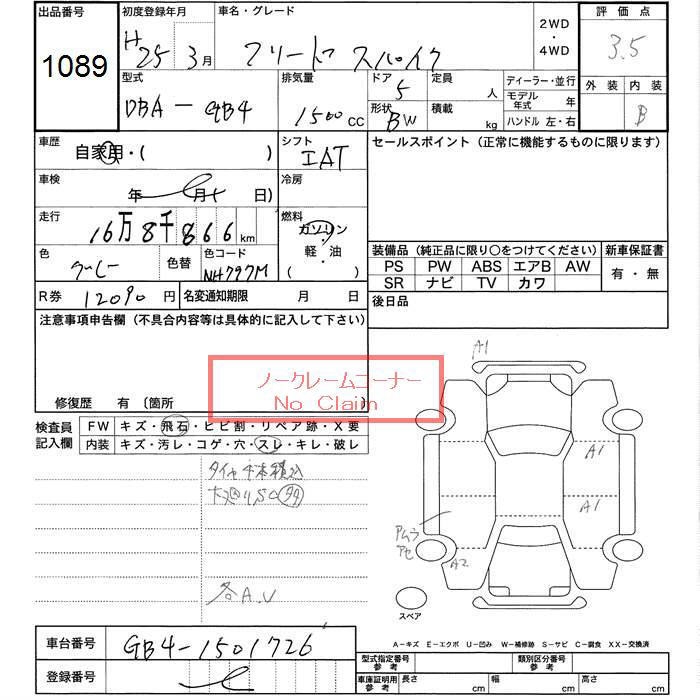 出品番号
1089
初度登録年月
H25 3月
車名・グレード
フリード スパイク
2WD
・
4WD
評価点
3.5
外装 内装
B
型式
DBA-GB4
排気量
1500cc
ドア
5
形状
BW
定員
人
積載
kg
ディーラー・並行
モデル年式 年
ハンドル 左・右
車歴
自家用・( )
シフト
IAT
セールスポイント (正常に機能するものに限ります)
車検
年 月 日
冷房
走行
16万8千866km
燃料
ガソリン
・
軽・油
( )
色
グレー
色替
色コード
NH797M
装備品 (純正品に限り○をつけてください)
PS PW ABS エアB AW
SR ナビ TV カワ
新車保証書
有・無
R券 12090円
名変通知期限 月 日
後日品
注意事項申告欄 (不具合内容等は具体的に記入して下さい)
ノークレームコーナー
No Claim
修復歴 有 〔箇所 〕
検査員
記入欄
FW キズ・飛石・ヒビ割・リペア跡・X要
内装 キズ・汚レ・コゲ・穴・スレ・キレ・破レ
タイヤ4本積込
各A.U
A1
A1
A1
A2
スペア
A-キズ E-エクボ U-凹み W-補修跡 S-サビ C-腐食 XX-交換済
車台番号
GB4-1501726
登録番号
型式指定番号
参考
類別区分番号
参考
車庫証明用
参考
長さ cm
幅 cm
高さ cm